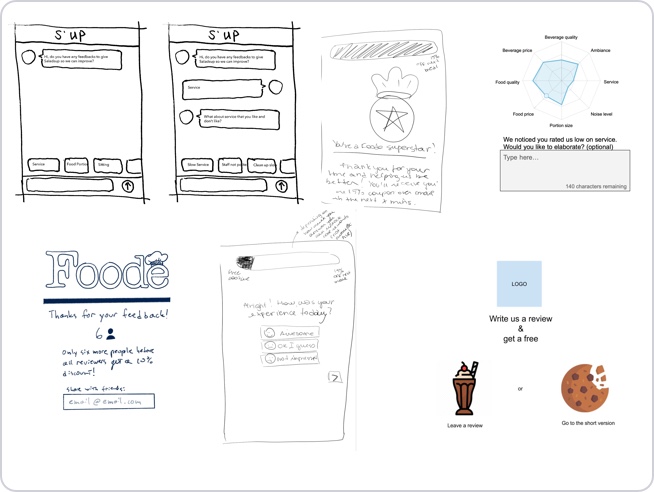 S'UP
Hi, do you have any feedbacks to give
Saladsup so we can improve?
Service
Food Portion
Editing
S'UP
Hi, do you have any feedbacks to give
Saladsup so we can improve?
Service
What about service that you like and
don't like?
Slow Service
Staff not
Close up
You're a Foode superstar!
Thank you for your
time and helping us be
better! You'll receive
a 15% coupon over email
in the next x mins.
Beverage quality
Beverage price
Ambiance
Food quality
Service
Food price
Noise level
Portion size
We noticed you rated us low on service.
Would you like to elaborate? (optional)
Type here...
140 characters remaining
Foode
Thanks for your feedback!
6
Only six more people before
all reviewers get a 10%
discount!
Share with friends:
email@email.com
Free
15%
Alright! How was your
experience today?
Awesome
Ok I guess
Not impressed
LOGO
Write us a review
&
get a free
or
Leave a review
Go to the short version